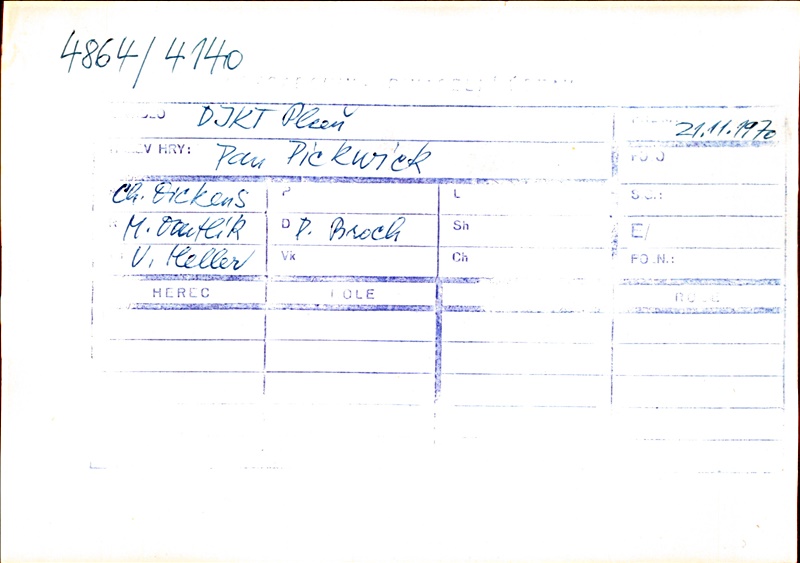 4864/4140
DJKT Plzeň 21.11.1970
EV HRY: Pan Pickwick
Ch. Dickens P L
M. D P. Broch Sh E/
V. Heller Vk Ch FO.N.:
HEREC OLE ROLE